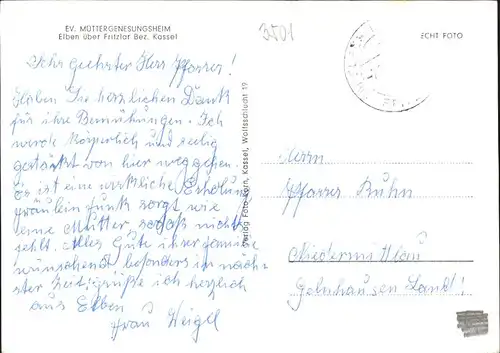 EV. MÜTTERGENESUNGSHEIM
Elben über Fritzlar Bez. Kassel
3501
ECHT FOTO
Sehr geehrter Herr Pfarrer!
Haben Sie herzlichen Dank
für ihre Bemühungen. Ich
werde körperlich und seelig
gestärkt von hier weggehen.
Es ist eine wirkliche Erholung
Fräulein Funk sorgt wie
eine Mutter, sodaß nichts
fehlt. Alles Gute ihrer Familie
wünschend besonders in näch-
ster Zeit, grüße ich herzlich
aus Elben
Frau Weigel
Verlag Foto Korn, Kassel, Wolfsschlucht 19
Herrn
Pfarrer
Niedermittlau
Gelnhausen Land!